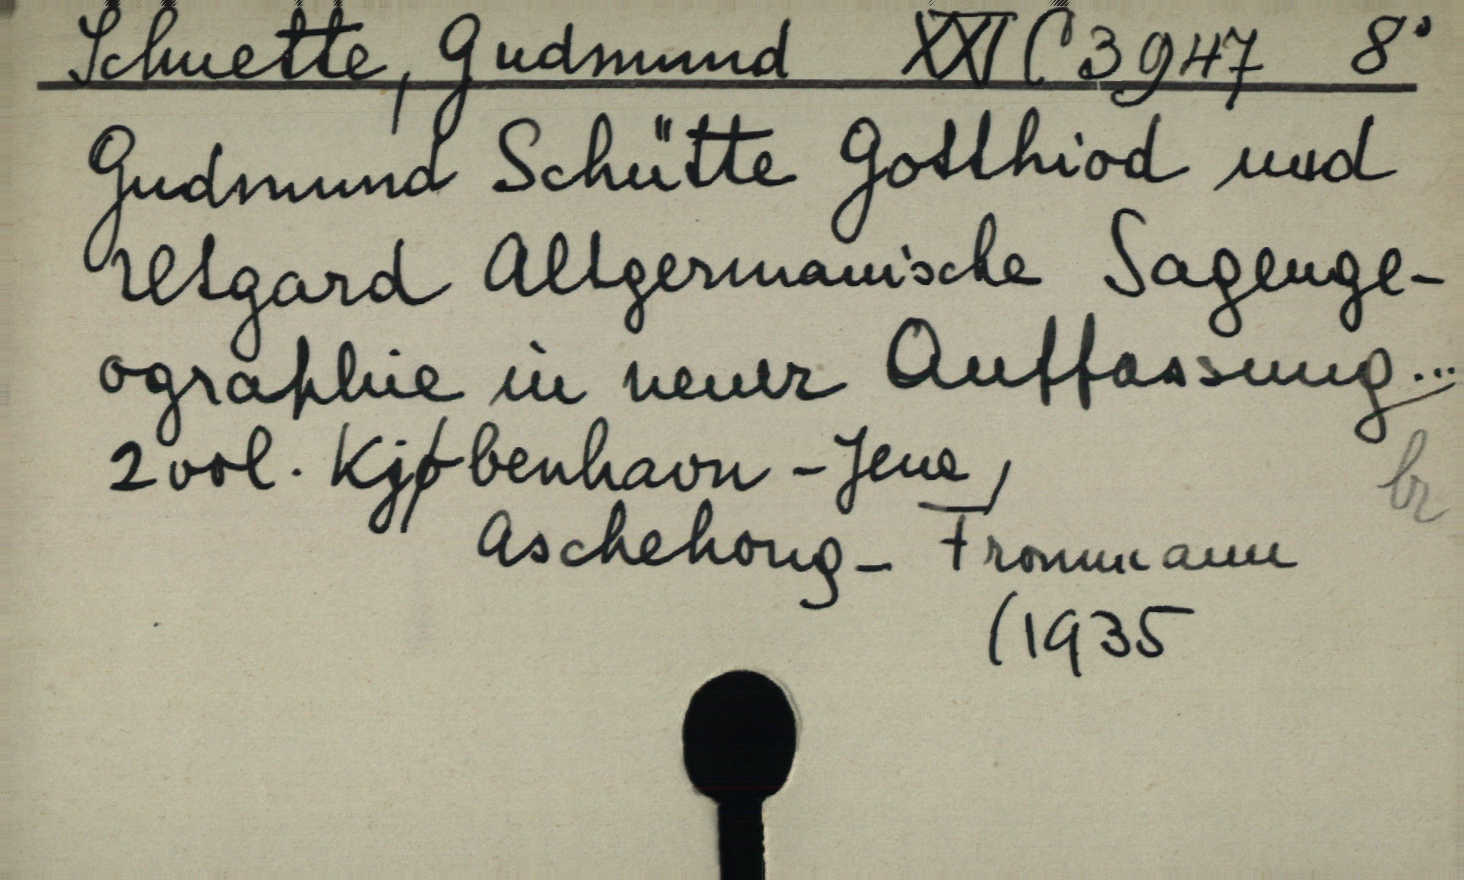 Schuette, Gudmund XXI C 3947 8°
Gudmund Schütte Gotthiod und
Utgard Altgermanische Sagenge-
ographie in neuer Auffassung...
2 vol. Kjøbenhavn - Jena,
br
Aschehoug - Frommann
(1935